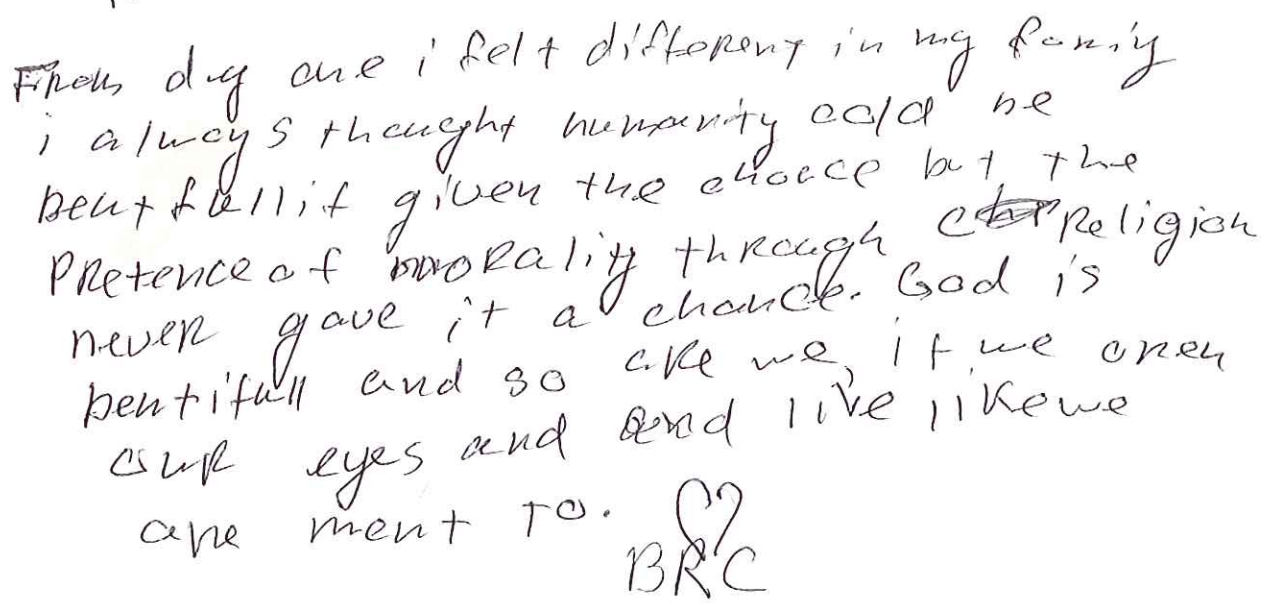 From day one i felt different in my family
i always thought humanity cold be
beutfull if given the choice but the
Pretence of morality through Religion
never gave it a chance. God is
beutifull and so are we, if we open
our eyes and and live like we
are ment to.
BRC